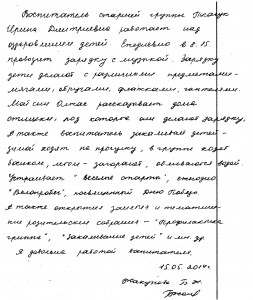 Воспитатель старшей группы Ткачук
Ирина Дмитриевна работает над
оздоровлением детей. Ежедневно в 8.15
проводит зарядку с музыкой. Зарядку
дети делают с различными предметами-
мячами, обручами, флажками, гантелями.
Мой сын Олжас рассказывает дома
стишки, под которые они делают зарядку.
А также воспитатель закаливает детей -
зимой ходят на прогулку, в группе ходят
босиком, летом - загорают, обливаются водой.
Устраивает "Веселые старты", ежегодно
посвященный Дню Победы.
А также открытые занятия и тематичес-
кие родительские собрания - "Профилактика
гриппа", "Закаливание детей" и мн. др.
Я довольна работой воспитателя.
15.05.2014г.